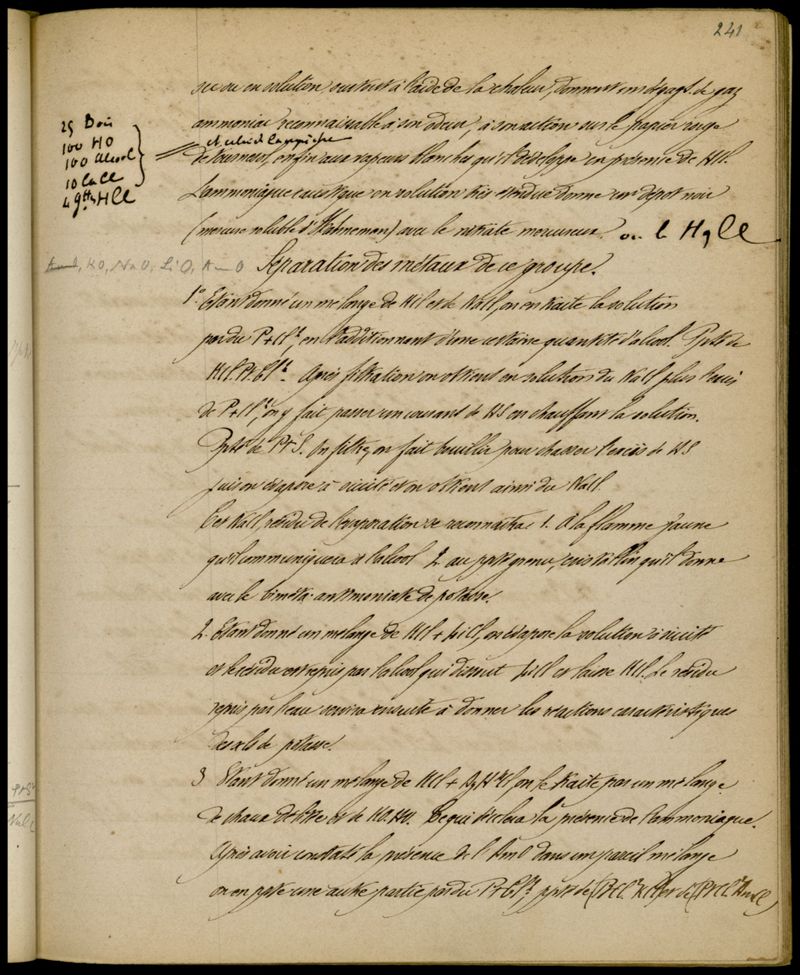 241
sec ou en solution, surtout à l'aide de la chaleur, donnent un dégagt. de gaz
ammoniac, reconnaissable à son odeur, à son action sur le papier rouge
et celui de campêche
de tournesol, enfin aux vapeurs blanches qu'il développe en présence de HCl.
25 Bois
100 HO
100 alcool
10 CaCl
4 gttes HCl
L'ammoniaque caustique en solution très étendue donne un dépôt noir
(mercure soluble d'Hahneman) avec le nitrate mercureux. ou le HgCl
KO, NaO, LiO, AmO
Séparation des métaux de ce groupe.
1° Etant donné un mélange de KCl et de NaCl, on en traite la solution
par du PtCl² en l'additionnant d'une certaine quantité d'alcool. Ppté de
KCl.PtCl². Après filtration on obtient en solution du NaCl plus l'excès
de PtCl², on y fait passer un courant de HS en chauffant la solution.
Ppté de PtS. On filtre, on fait bouillir pour chasser l'excès de HS
puis on évapore à siccité et on obtient ainsi du NaCl.
Ce NaCl, résidu de l'évaporation se reconnaîtra 1. A la flamme jaune
qu'il communiquera à l'alcool 2. au ppté grenu, cristallin qu'il donne
avec le biméta-antimoniate de potasse.
2. Etant donné un mélange de KCl + LiCl, on évapore la solution à siccité
et le résidu est repris par l'alcool qui dissout LiCl et laisse KCl. Le résidu
repris par l'eau servira ensuite à donner les réactions caractéristiques
des sels de potasse.
3 Etant donné un mélange de KCl + AzH⁴Cl, on le traite par un mélange
de chaux délitée et de KO.HO. Ce qui décèlera la présence de l'ammoniaque.
Après avoir constaté la présence de l'AmCl dans un pareil mélange
on en ppte une autre partie par du PtCl², ppté de (PtCl².KCl) et de (PtCl².AmCl)